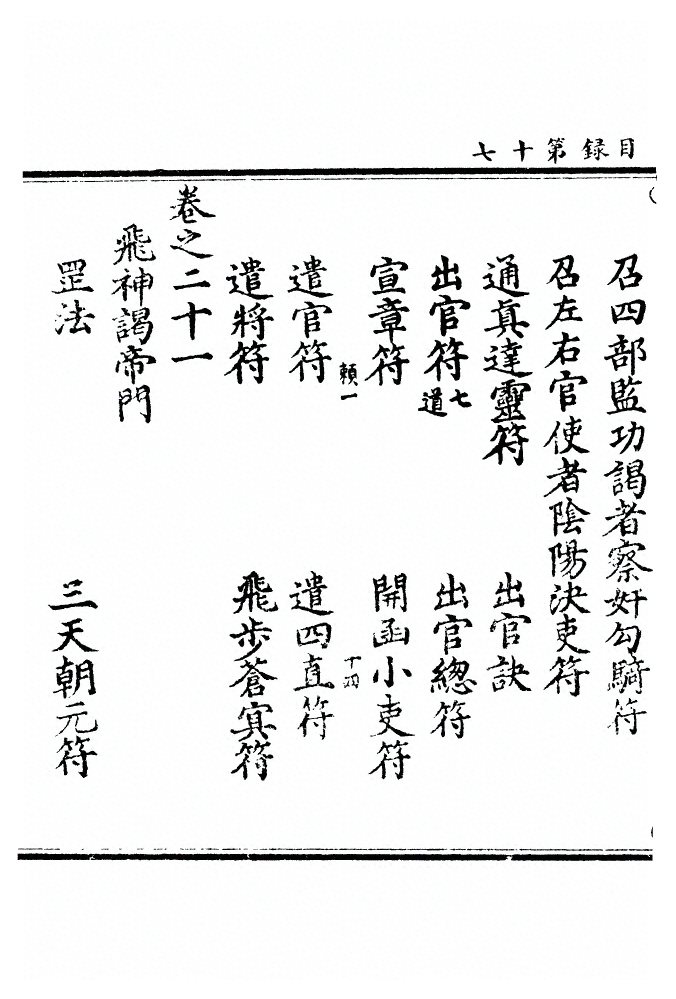 目録第十七
召四部監功謁者察奸勾騎符
召左右官使者陰陽決吏符
通真達靈符　出官訣
出官符七道　出官總符
宣章符　開函小吏符
頼一　十四
遣官符　遣四直符
遣將符　飛步蒼㝠符
卷之二十一
飛神謁帝門
罡法　三天朝元符